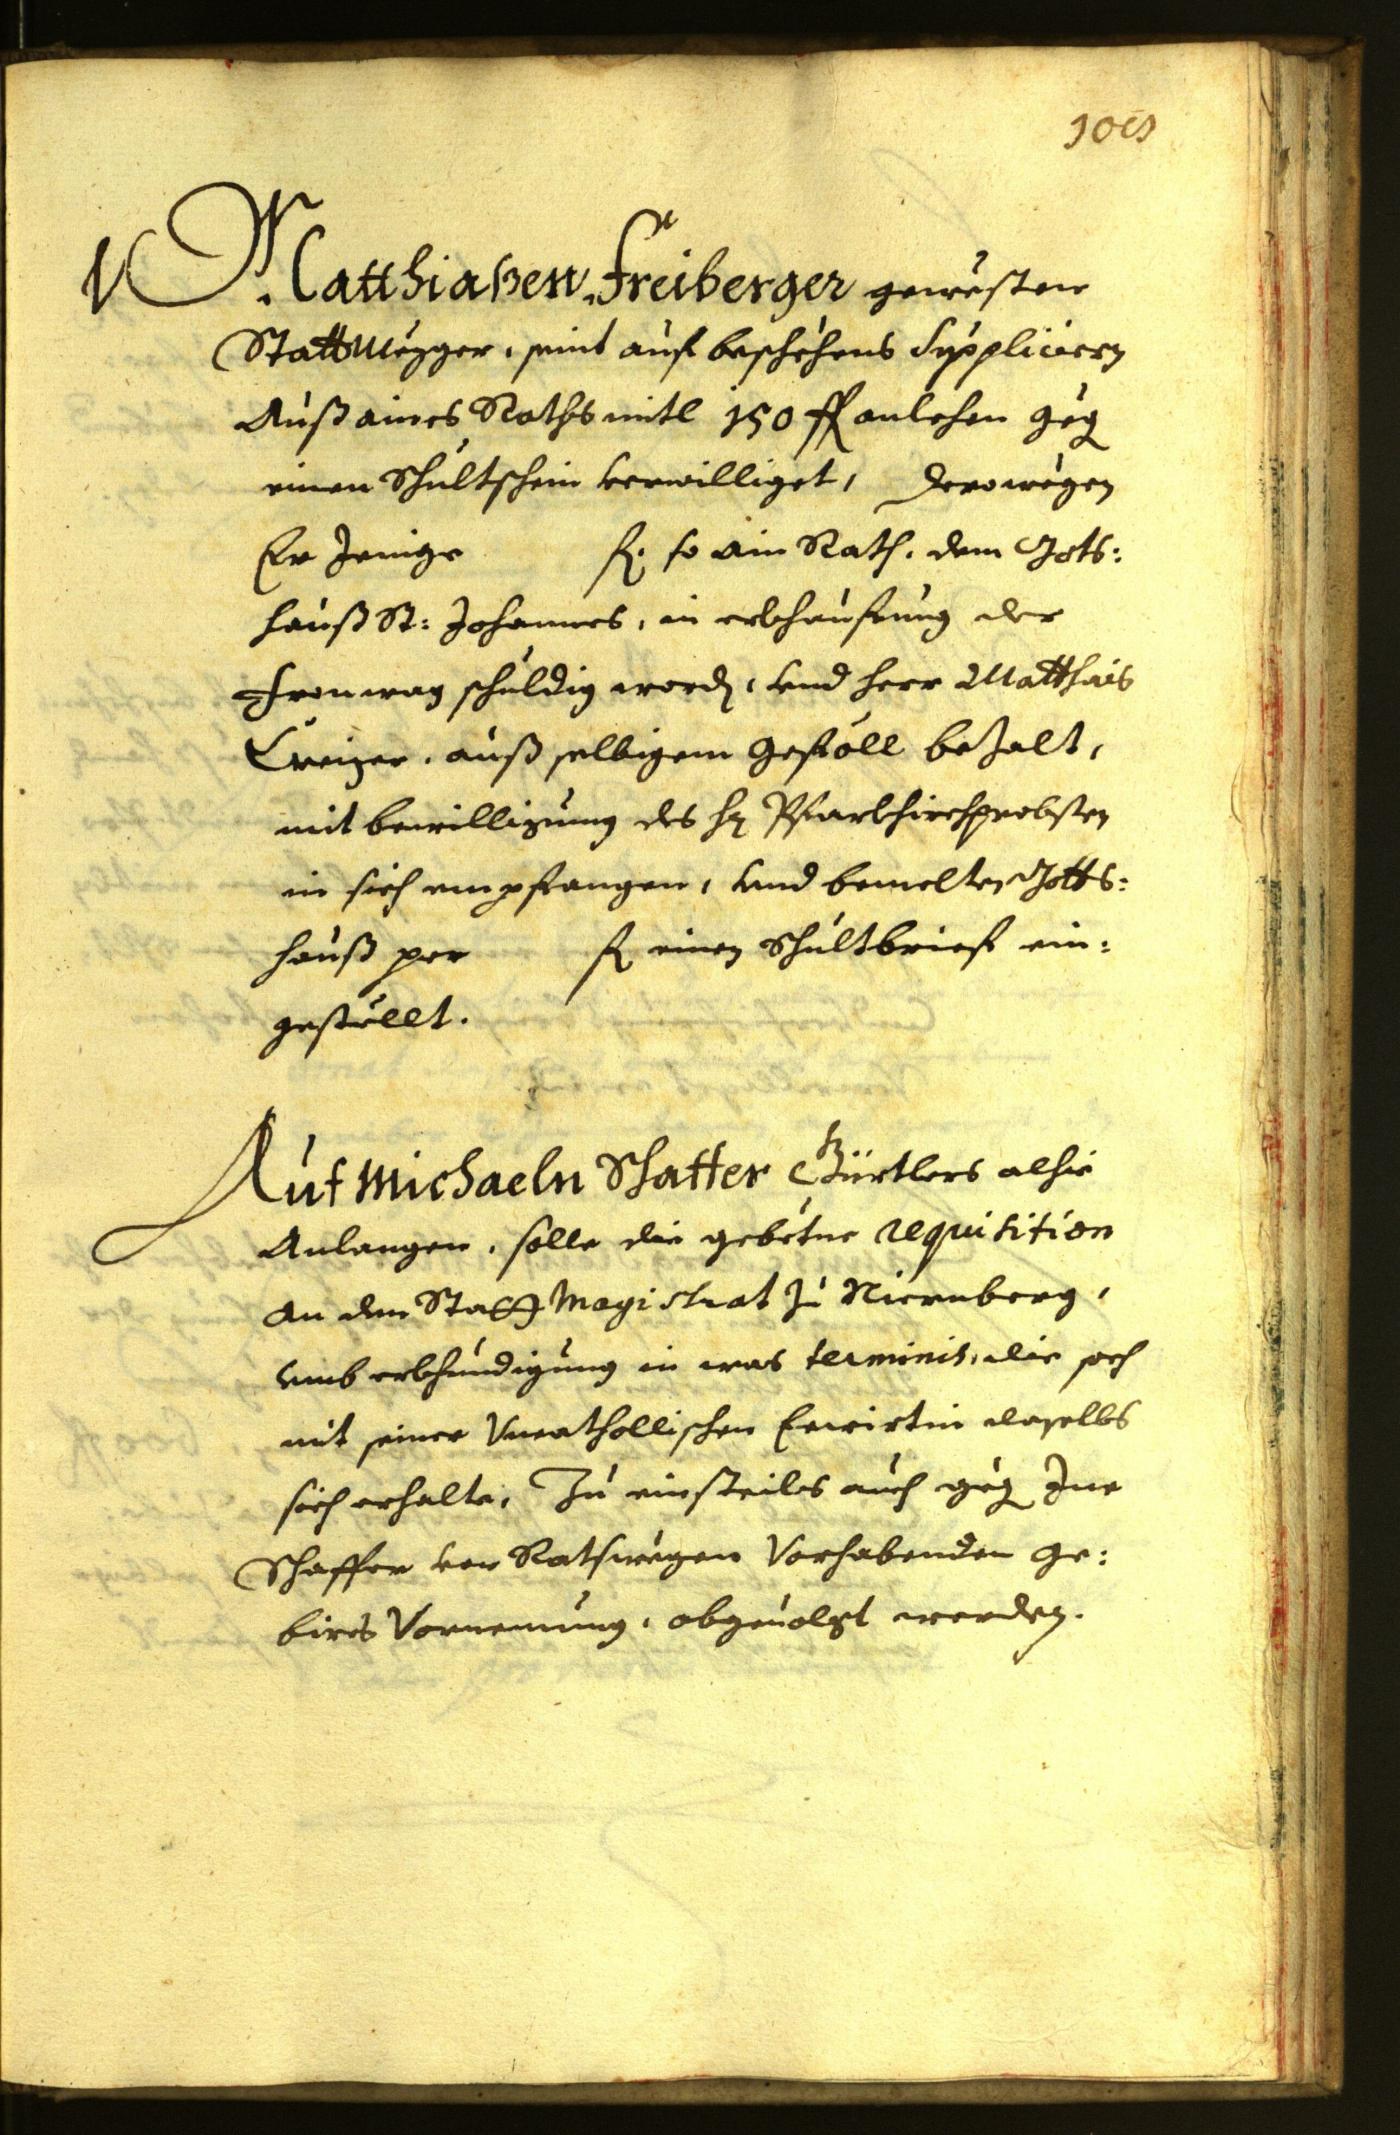 Matthiaßen Freiberger gewesten
Stattmezger, seint auf beschehens Suppliciern
Auß aines Raths mitl 150 fl anlehen geg
einen Schultschein verwilliget, Derowegen
Er Jenige fl. so ain Rath, dem Gots:
hauß St: Johannes, in erkhauffung der
Fronwag schuldig word, vnd herr Matthais
Creizer, auß selbigem Gestöll bezalt,
mit bewilligung des hn Pfarkhirchprobsten
in sich empfangen, vnd bemelten Gotts:
hauß per fl einen Schultbrief ein:
gestellt.
Auf Michaeln Schaffer Gürtlers alhie
Anlangen, solle die gebetne requisition
an den Statt Magistrat zu Niernberg,
vmb erkhundigung in was terminis, die sach
mit seiner Vncathollischen Ewirtin daselbs
sich erhalte, Zu einsteilss auch geg Ine
Schaffer von Ratswegen Vorhabenden ge:
birs Vornemung, abgeuolgt werden.